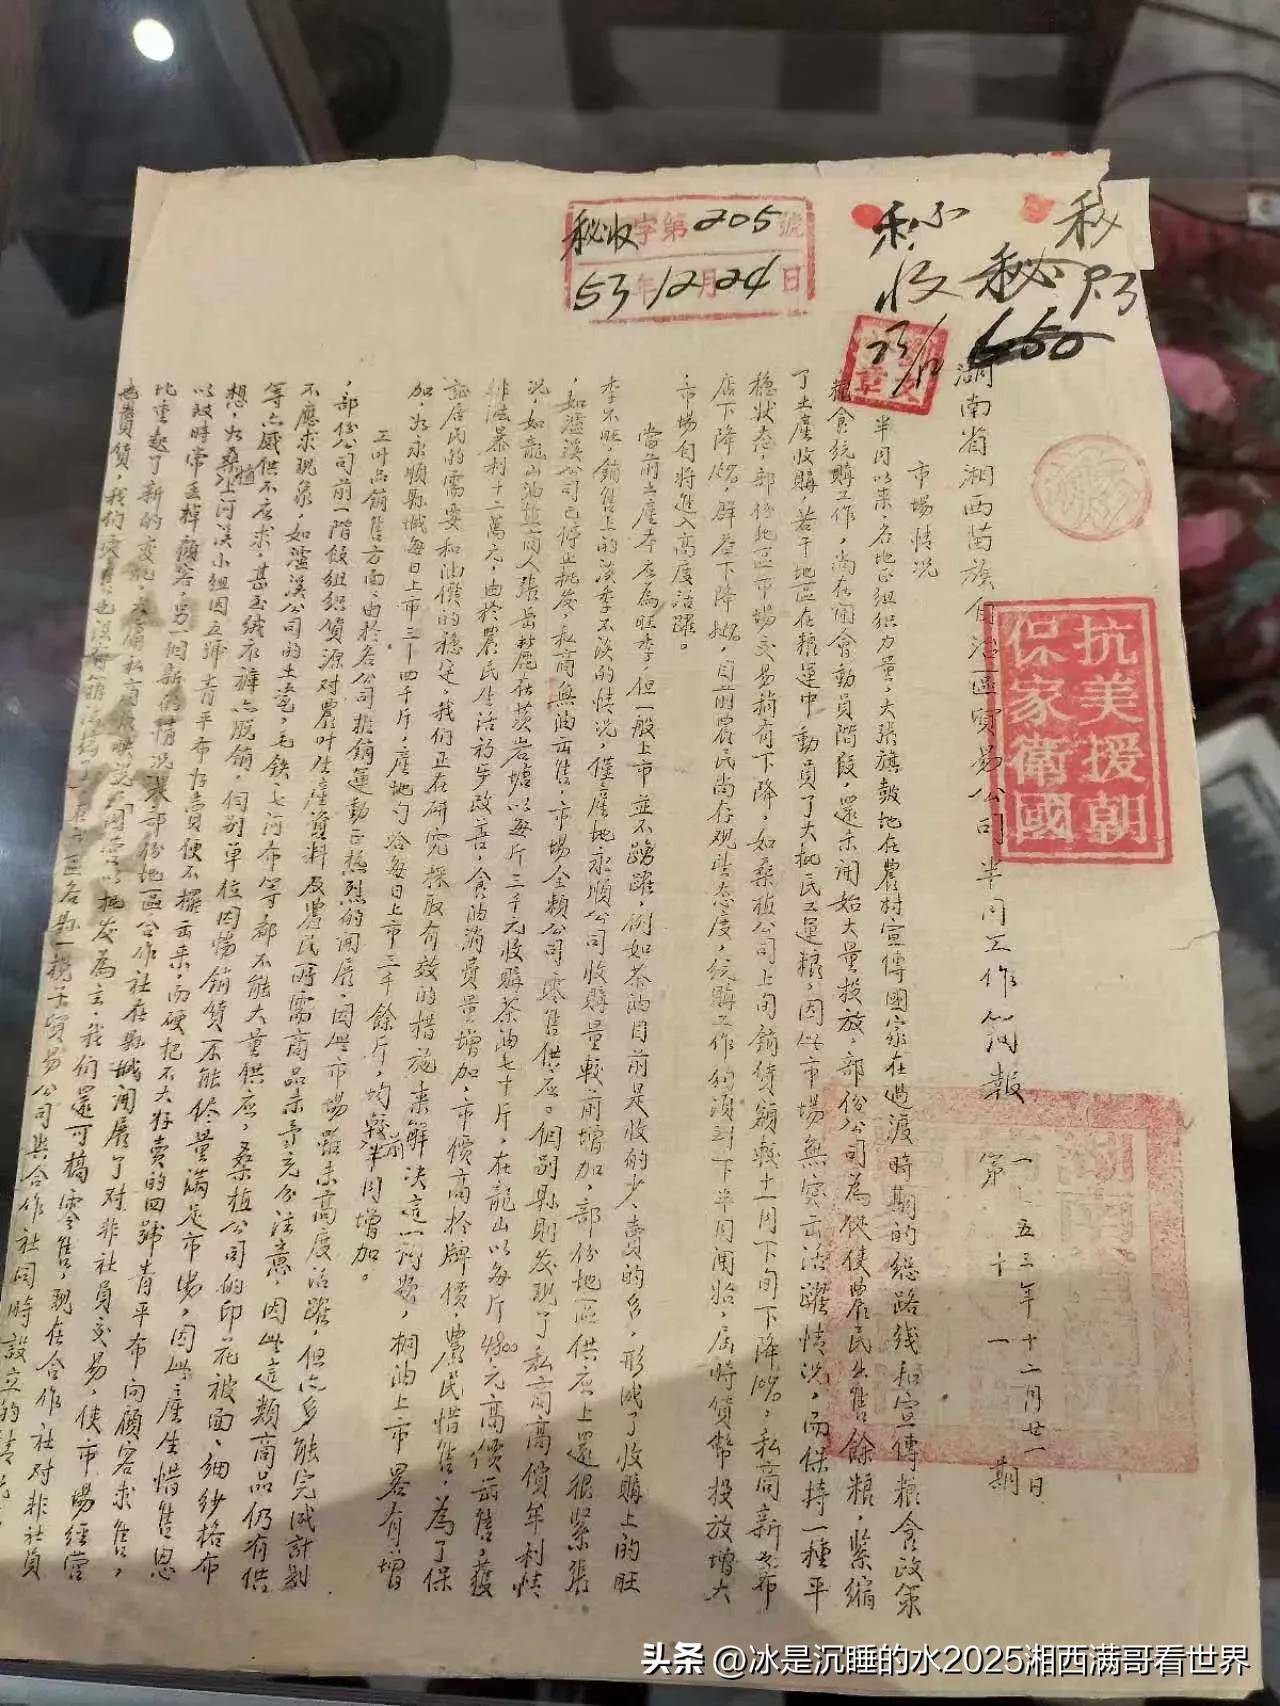 秘收字第205號
53年12月24日
秘
收
秘
秘
650
23/12
抗美援朝
保家衛國
湖南省湘西苗族自治區貿易公司半月工作简報
一九五三年十二月廿一日
第十一期
市場情况
半月以来，各地正組织力量，大張旗鼓地在農村宣傳國家在過渡時期的總路线和宣傳粮食政策
粮食统購工作，尚在開會動員階段，還未開始大量投放，部份公司為促使農民出售餘粮，紧縮
了土產收購，若干地區在粮運中動員了大批民工運粮，因此市場無突出活躍情况，而保持一種平
穩状态，部份地區市場交易稍有下降，如桑植公司上旬銷售額較十一月下旬下降10%，私商新
店下降
目前農民尚存观望态度，统購工作約須到下半月開始，屆時貨幣投放增大
，市場自將進入高度活躍。
當前土產本應為旺季，但一般上市並不踴躍，例如茶油目前是收的少，賣的多，形成了收購上的旺
季不旺，銷售上的淡季不淡的情况，僅產地永順公司收購量較前增加，部份地區供应上還很紧張
，如瀘溪公司已停止批发，私商無油可售，市場全賴公司零售供应。個别縣則发現了私商高價牟利情
况，如龍山油
商人張岳麓在茨岩塘以每斤三千元收購茶油七十斤，在龍山以每斤4800元高價出售，獲
非法暴利十二萬元，由於農民生活初步改善，食油消費量增加，市價高於牌價，農民惜售，為了保
証居民的需要和油價的穩定，我們正在研究採取有效的措施来解决這一问题，桐油上市畧有增
加，如永順縣城每日上市三—四千斤，產地
每日上市三千餘斤，均較前半月增加。
工业品銷售方面，由於各公司推銷運動正热烈的開展，因此市場雖未高度活躍，但亦多能完成計划
，部份公司前一階段組织貨源对農业生產資料及農民所需商品未予充分注意，因此這類商品仍有供
不應求現象，如瀘溪公司的土瓷，毛鉄，
河布等都不能大量供应，桑植公司的印花被面，細紗格布
等亦感供不应求，甚至絨衣褲亦脱銷，個别單位因暢銷貨不能尽量滿足市場，因此產生惜售思
想，如桑植上河溪小組因五號青平布好賣便不擺出来，而硬把不大好賣的四號青平布向顧客求售，
以致時常丢掉顧客，另一個新的情况
部份地區合作社在縣城開展了对非社員交易，使市場經營
比重起了新的变化
私商反映说
以批发為主，我們還可搞零售，現在合作社对非社員
也賣貨，我们
區各縣一般
貿易公司與合作社同時設立的
头条 @冰是沉睡的水2025湘西满哥看世界